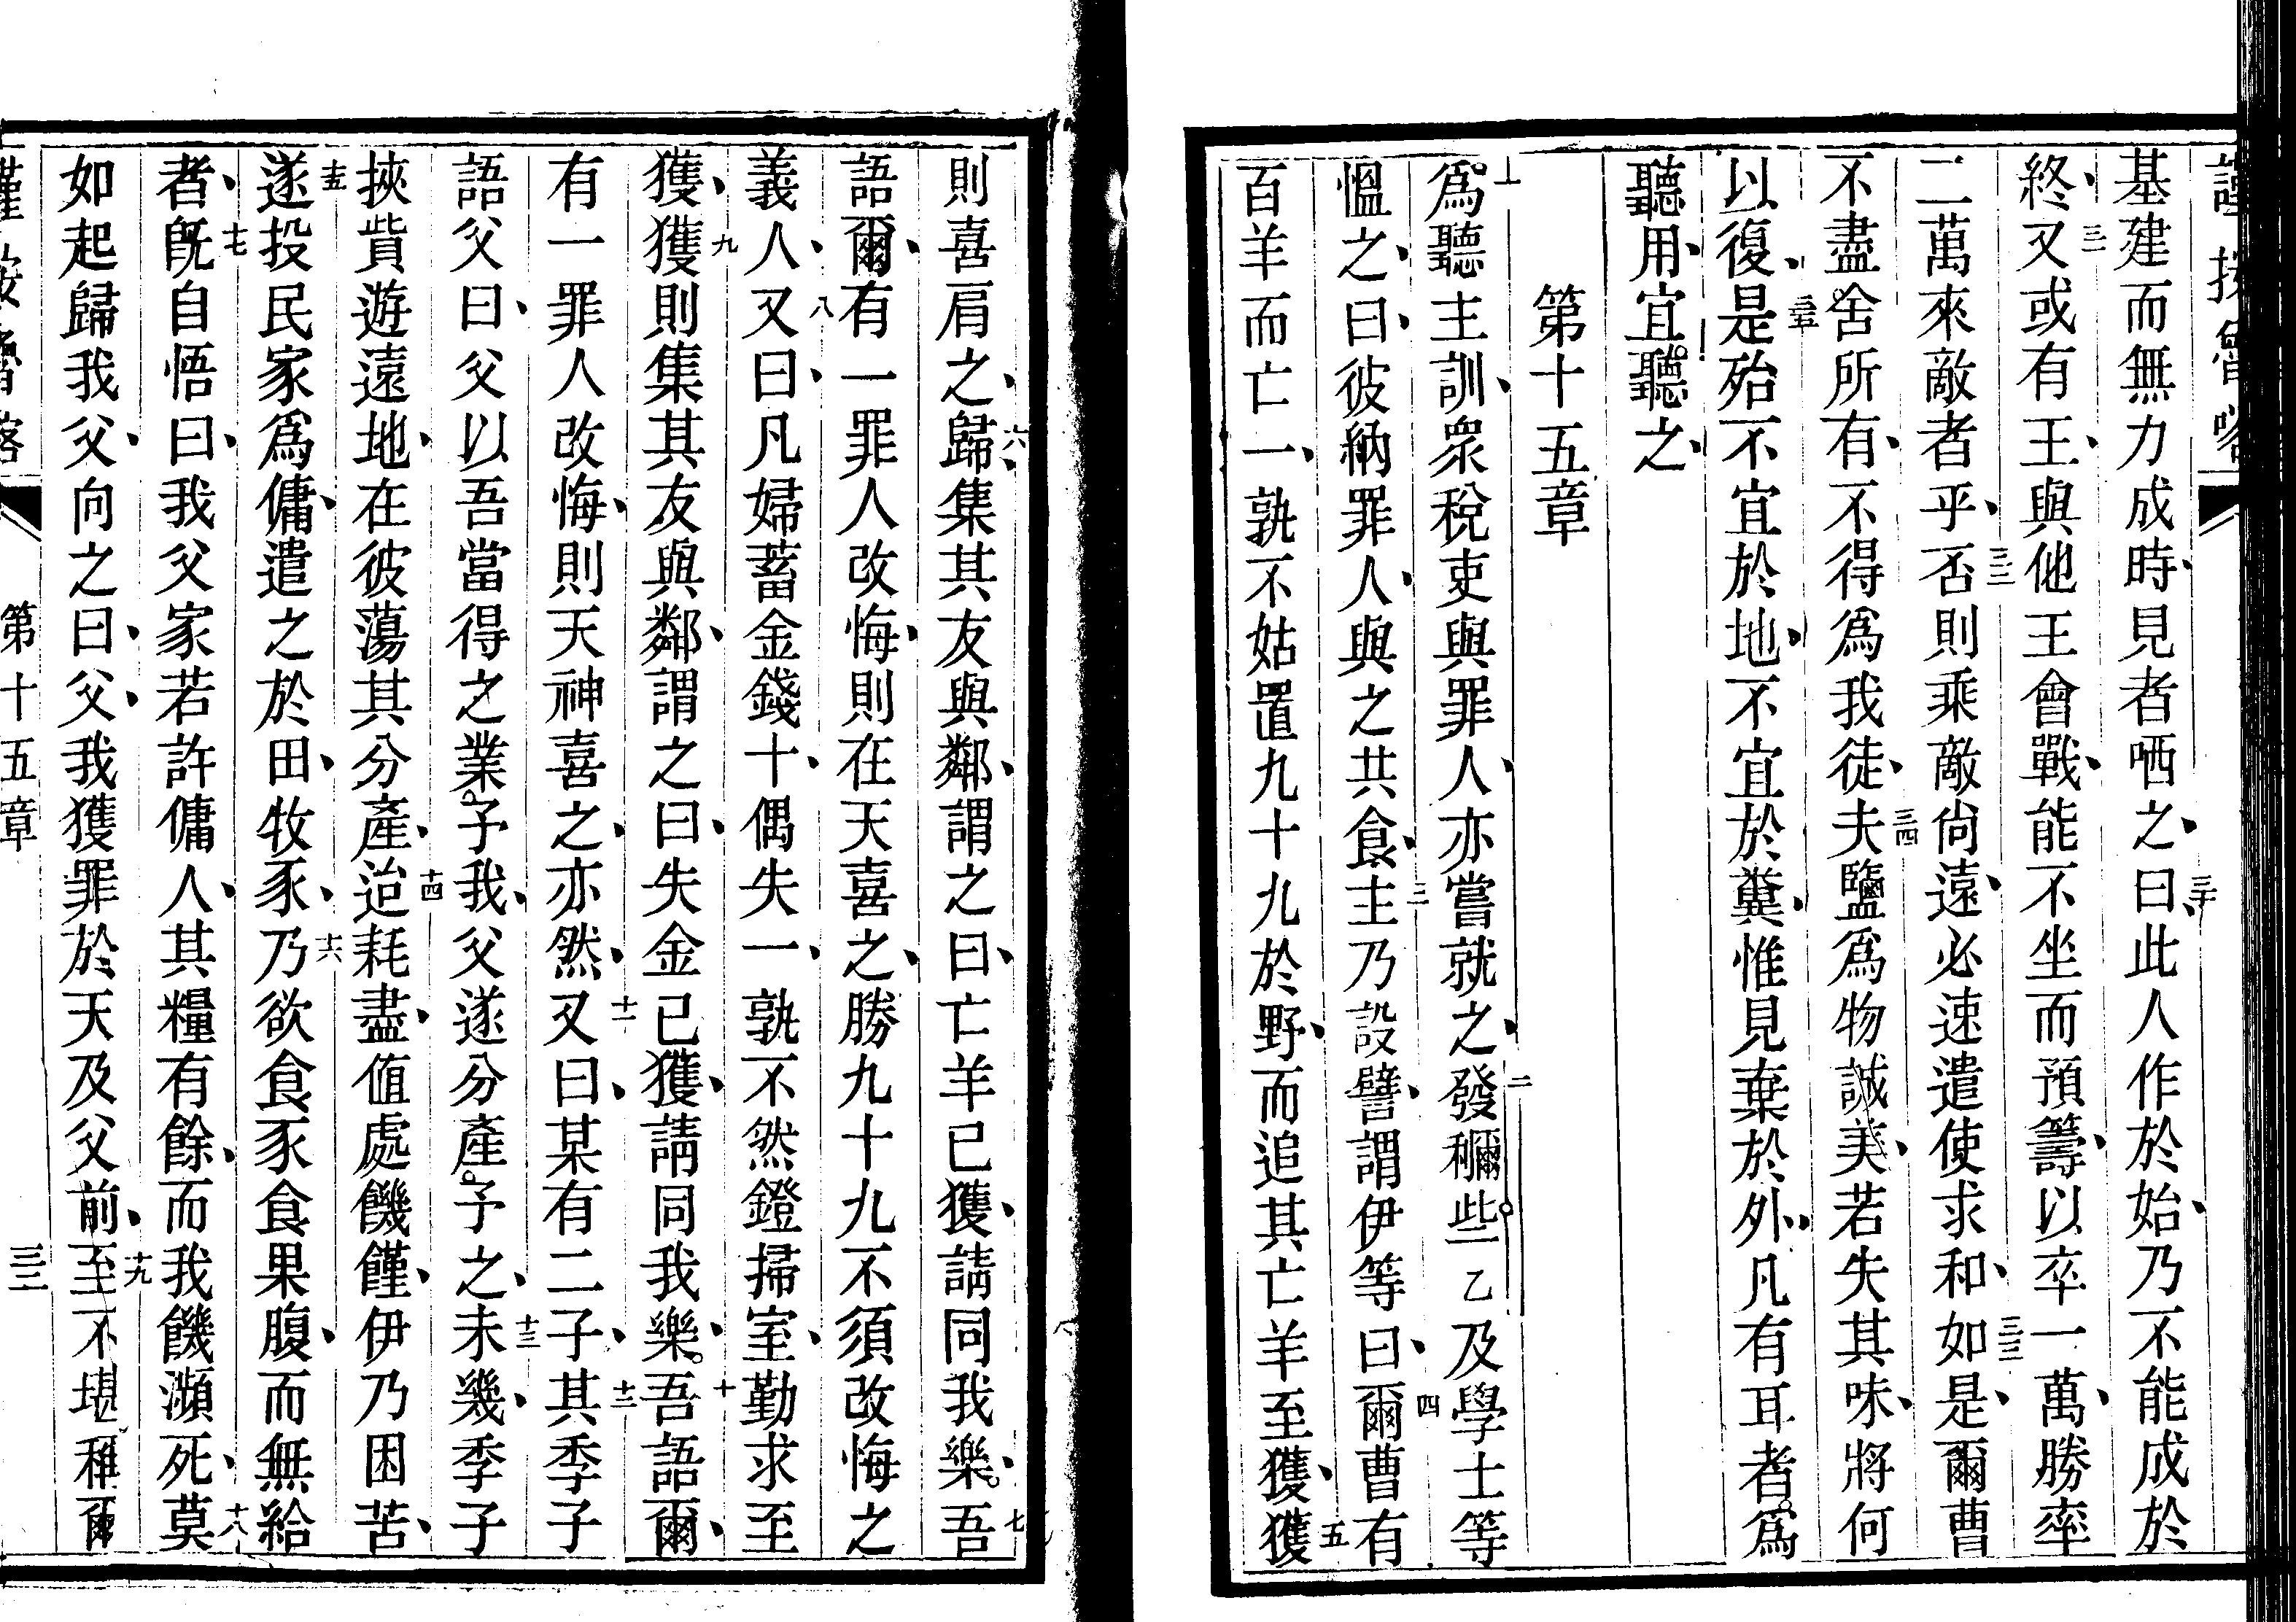 基建而無力成時、見者哂之、曰、三十此人作於始、乃不能成於
終、三一又或有王、與他王會戰、能不坐而預籌、以卒一萬、勝率
二萬來敵者乎、三二否則乘敵尙遠、必速遣使求和、三三如是、爾曹
不盡舍所有、不得爲我徒、三四夫鹽爲物誠美、若失其味、將何
以復、三五是殆不宜於地、不宜於糞、惟見棄於外、凡有耳者爲
聽用、宜聽之、
第十五章
一爲聽主訓、眾稅吏與罪人、亦嘗就之、二發穪些乙及學士等
慍之、曰、彼納罪人、與之共食、三主乃設譬、謂伊等曰、四爾曹有
百羊而亡一、孰不姑置九十九於野、而追其亡羊至獲、五獲
則喜肩之、六歸、集其友與鄰、謂之曰、亡羊已獲、請同我樂、七吾
語爾、有一罪人改悔、則在天喜之、勝九十九不須改悔之
義人、八又曰、凡婦蓄金錢十、偶失一、孰不然鐙掃室、勤求至
獲、九獲則集其友與鄰、謂之曰、失金已獲、請同我樂、十吾語爾、
有一罪人改悔、則天神喜之、亦然、十一又曰、某有二子、十二其季子
語父曰、父以吾當得之業予我、父遂分產予之、十三未幾、季子
挾貲遊遠地、在彼蕩其分產、十四迨耗盡、値處饑饉、伊乃困苦、
十五遂投民家爲傭、遣之於田、牧豕、十六乃欲食豕食果腹、而無給
者、十七旣自悟曰、我父家若許傭人、其糧有餘、而我饑瀕死、十八莫
如起歸我父、向之曰、父、我獲罪於天及父前、十九至不堪稱爾
第十五章
三二